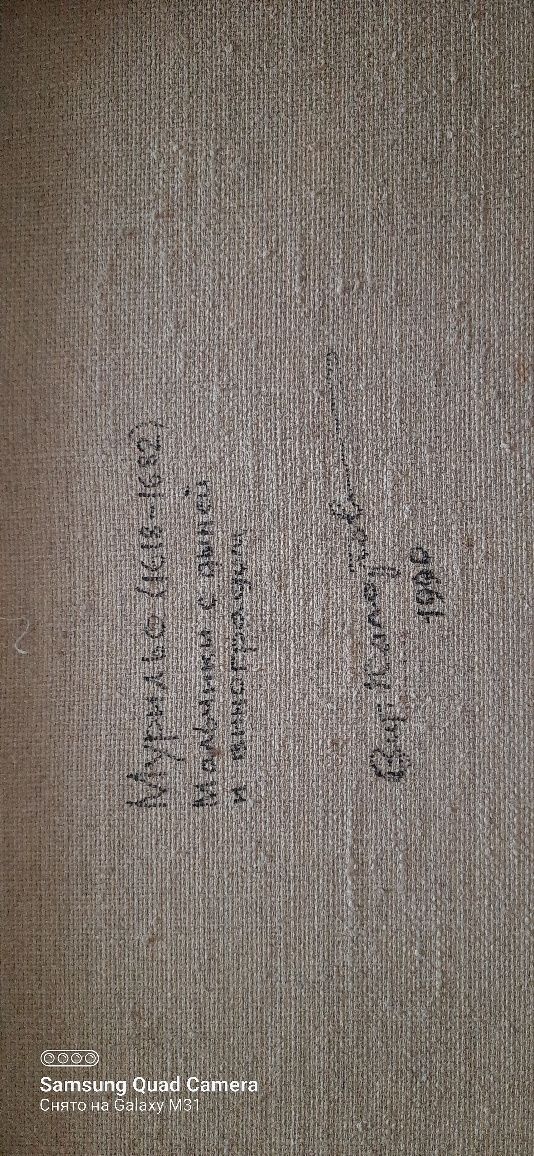 Мурильо (1618-1682)
Мальчики с дыней
и виноградом
1990
Samsung Quad Camera
Снято на Galaxy M31